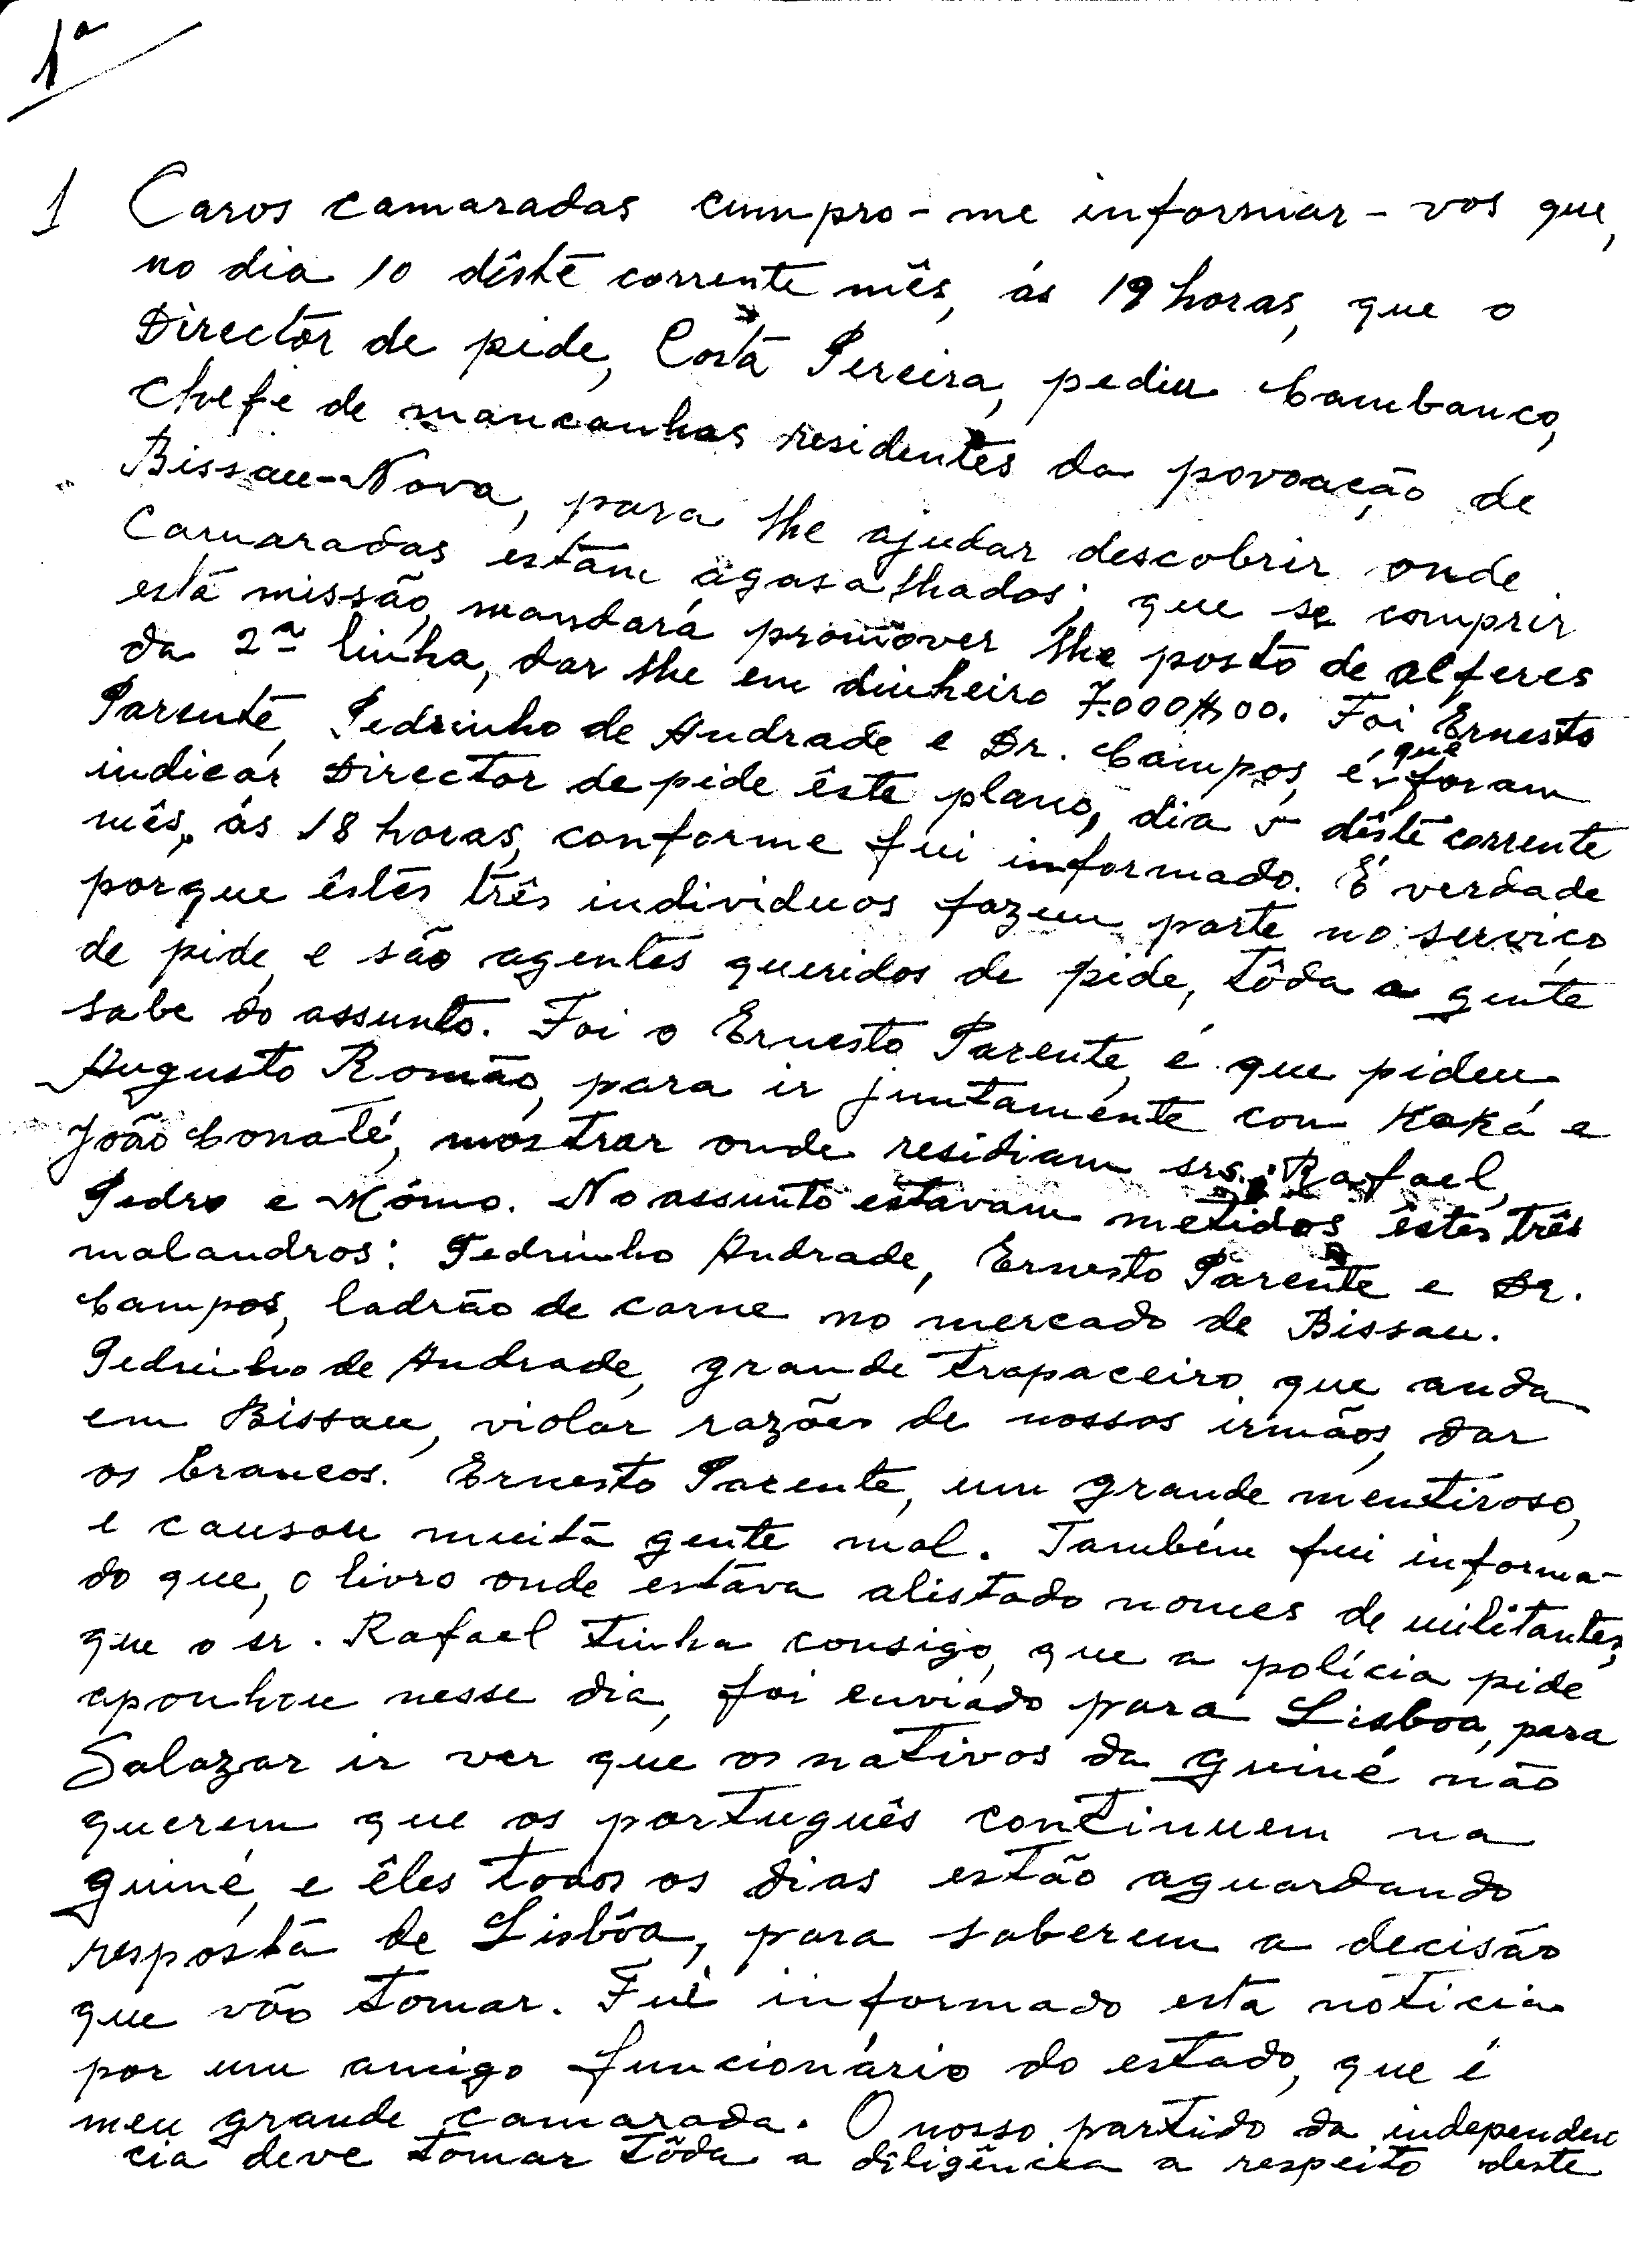 1ª
1 Caros camaradas cumpro-me informar-vos que,
no dia 10 dêste corrente mês, ás 19 horas, que o
Director de pide, Costa Pereira, pediu Cambanco,
chefe de mancanhas residentes da povoação de
Bissau-Nova, para lhe ajudar descobrir onde
Camaradas estam agasalhados; que se comprir
esta missão, mandará promover lhe posto de alferes
da 2ª linha, dar lhe em dinheiro 7.000$00. Foi Ernesto
Parente, Pedrinho de Andrade e Dr. Campos, é que foram
indicar Director de pide êste plano, dia 5 dêste corrente
mês, ás 18 horas, conforme fui informado. É verdade
porque êstes três individuos fazem parte no serviço
de pide, e são agentes queridos de pide, tôda a gente
sabe do assunto. Foi o Ernesto Parente, é que pideu
Augusto Romão, para ir juntamente con Kaká e
João Conaté, mostrar onde residiam srs. Rafael,
Pedro e Mómo. No assunto estavam metidos êstes três
malandros: Pedrinho Andrade, Ernesto Parente e Dr.
Campos, ladrão de carne no mercado de Bissau.
Pedrinho de Andrade, grande trapaceiro que anda
em Bissau, violar razões de nossos irmãos, dar
os brancos. Ernesto Parente, um grande mentiroso,
e causou muita gente mal. Também fui informa-
do que, o livro onde estava alistado nomes de militantes,
que o sr. Rafael tinha consigo, que a polícia pide
aponhou nesse dia, foi enviado para Lisboa, para
Salazar ir ver que os nativos da guiné não
querem que os português continuem na
guiné, e êles todos os dias estão aguardando
resposta de Lisbôa, para saberem a decisão
que vão tomar. Fui informado esta noticia
por um amigo funcionário do estado, que é
meu grande camarada. O nosso partido da independen
cia deve tomar tôda a diligência a respeito deste